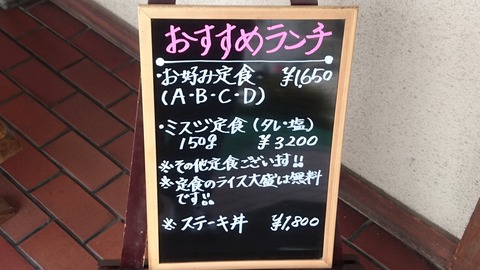 おすすめランチ
・お好み定食 ¥1,650
(A・B・C・D)
・ミスジ定食(タレ・塩)
150g ¥3200
※その他定食ございます!!
※定食のライス大盛は無料
です!!
※ステーキ丼 ¥1,800